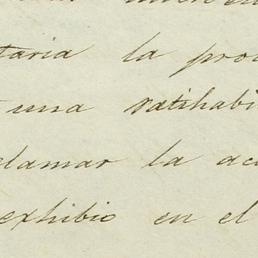 taria la pro
una ratihabi
clamar la ac
exhibio en el